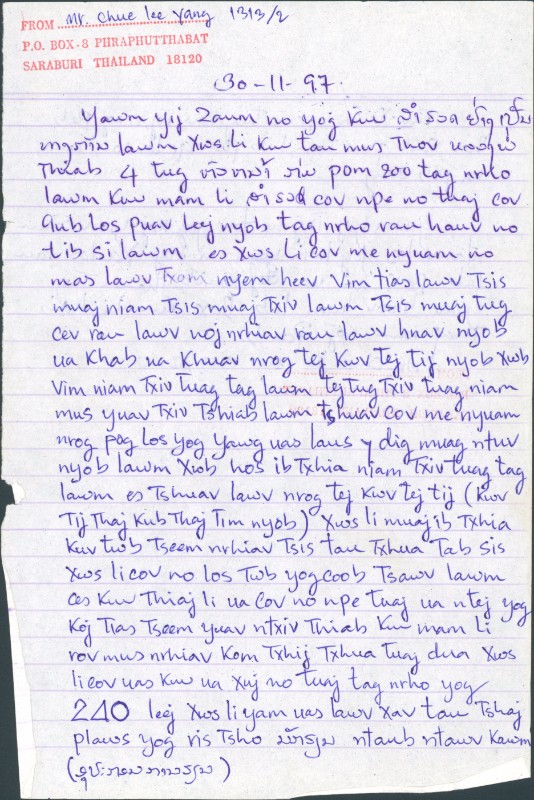 FROM Mr. chue lee yang 1313/2
P.O. BOX-8 PHRAPHUTTHABAT
SARABURI THAILAND 18120
30-11-97.
Yawm yij Zaum no yog Kuv ສຳຣວດ
lawm Xws li Kuv tau mus Thov
Thiab 4 tug pom 200 tag nrho
lawm Kuv mam li ສຳຣວດ cov npe no thaj cov
qub los puav leej nyob tag nrho rau hauv no
tib si lawm es Xws li cov me nyuam no
mas lawv Txom nyem heev Vim tias lawv Tsis
muaj niam Tsis muaj Txiv lawm Tsis muaj Tug
cev rau lawv noj nrhiav rau lawv hnav nyob
ua Khab ua Khuav nrog tej Kwv tej tij nyob Xwb
Vim niam Txiv Tuag tag lawm tej tug Txiv tuag niam
mus yuav Txiv Tshiab lawm tshuav cov me nyuam
nrog pog los yog yawg uas laus dig muag ntuv
nyob lawm Xwb hos ib Txhia niam Txiv tuag tag
lawm es Tshuav lawv nrog tej Kwv tej tij (Kwv
Tij Thaj Kub Thaj Tim nyob) Xws li muaj ib Txhia
Kuv twb Tseem nrhiav Tsis tau Txhua Tab sis
Xws li cov no los Twb yog coob Tsawv lawm
ces Kuv Thiaj li ua cov no npe tuaj ua ntej yog
Koj Tias Tseem yuav ntxiv Thiab Kuv mam li
rov mus nrhiav Kom Txhij Txhua tuaj dua Xws
li cov uas Kuv ua Xuj no tuaj tag nrho yog
240 leej Xws li yam uas lawv Xav tau Tshaj
plaws yog ris Tsho ntaub ntawv Kawm
(ອຸປະກອນການຮຽນ)